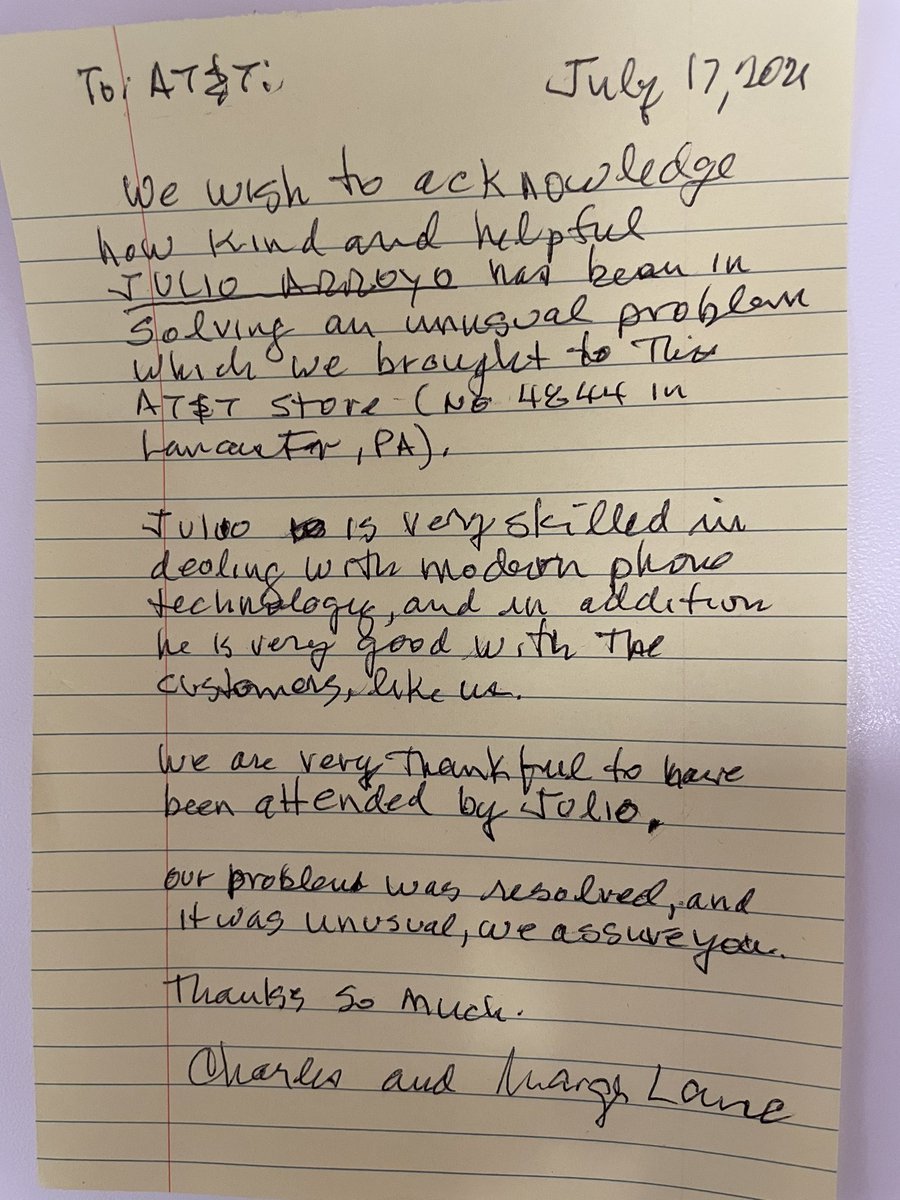 To: AT&T:
July 17, 2021
We wish to acknowledge
how kind and helpful
JULIO ARROYO has been in
solving an unusual problem
which we brought to this
AT&T store (No 4844 in
Lancaster, PA).
Julio is very skilled in
dealing with modern phone
technology, and in addition
he is very good with the
customers, like us.
We are very thankful to have
been attended by Julio.
our problem was resolved, and
it was unusual, we assure you.
Thanks so much.
Charles and Marge Lane